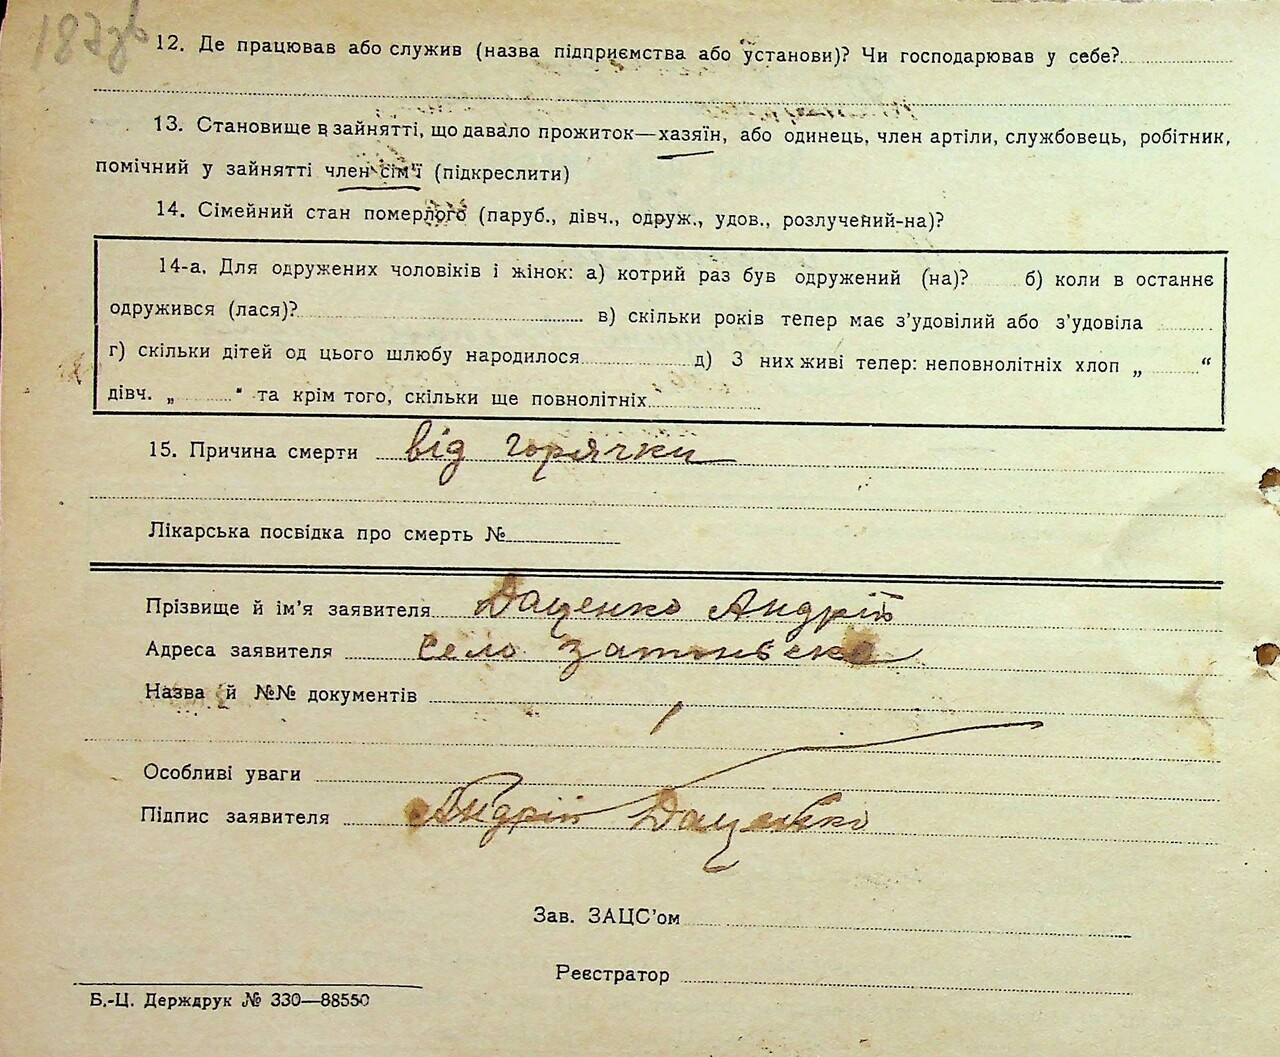 187зв
12. Де працював або служив (назва підприємства або установи)? Чи господарював у себе?
13. Становище в зайнятті, що давало прожиток—хазяїн, або одинець, член артіли, службовець, робітник,
помічний у зайнятті член сім'ї (підкреслити)
14. Сімейний стан померлого (паруб., дівч., одруж., удов., розлучений-на)?
14-а. Для одружених чоловіків і жінок: а) котрий раз був одружений (на)? б) коли в останнє
одружився (лася)? в) скільки років тепер має з'удовілий або з'удовіла
г) скільки дітей од цього шлюбу народилося д) З них живі тепер: неповнолітніх хлоп „ “
дівч. „ “ та крім того, скільки ще повнолітніх
15. Причина смерти від горячки
Лікарська посвідка про смерть №
Прізвище й ім'я заявителя Даценко Андрій
Адреса заявителя село Затонське
Назва й №№ документів
Особливі уваги
Підпис заявителя Андрій Даценко
Зав. ЗАЦС'ом
Реєстратор
Б.-Ц. Держдрук № 330—88550